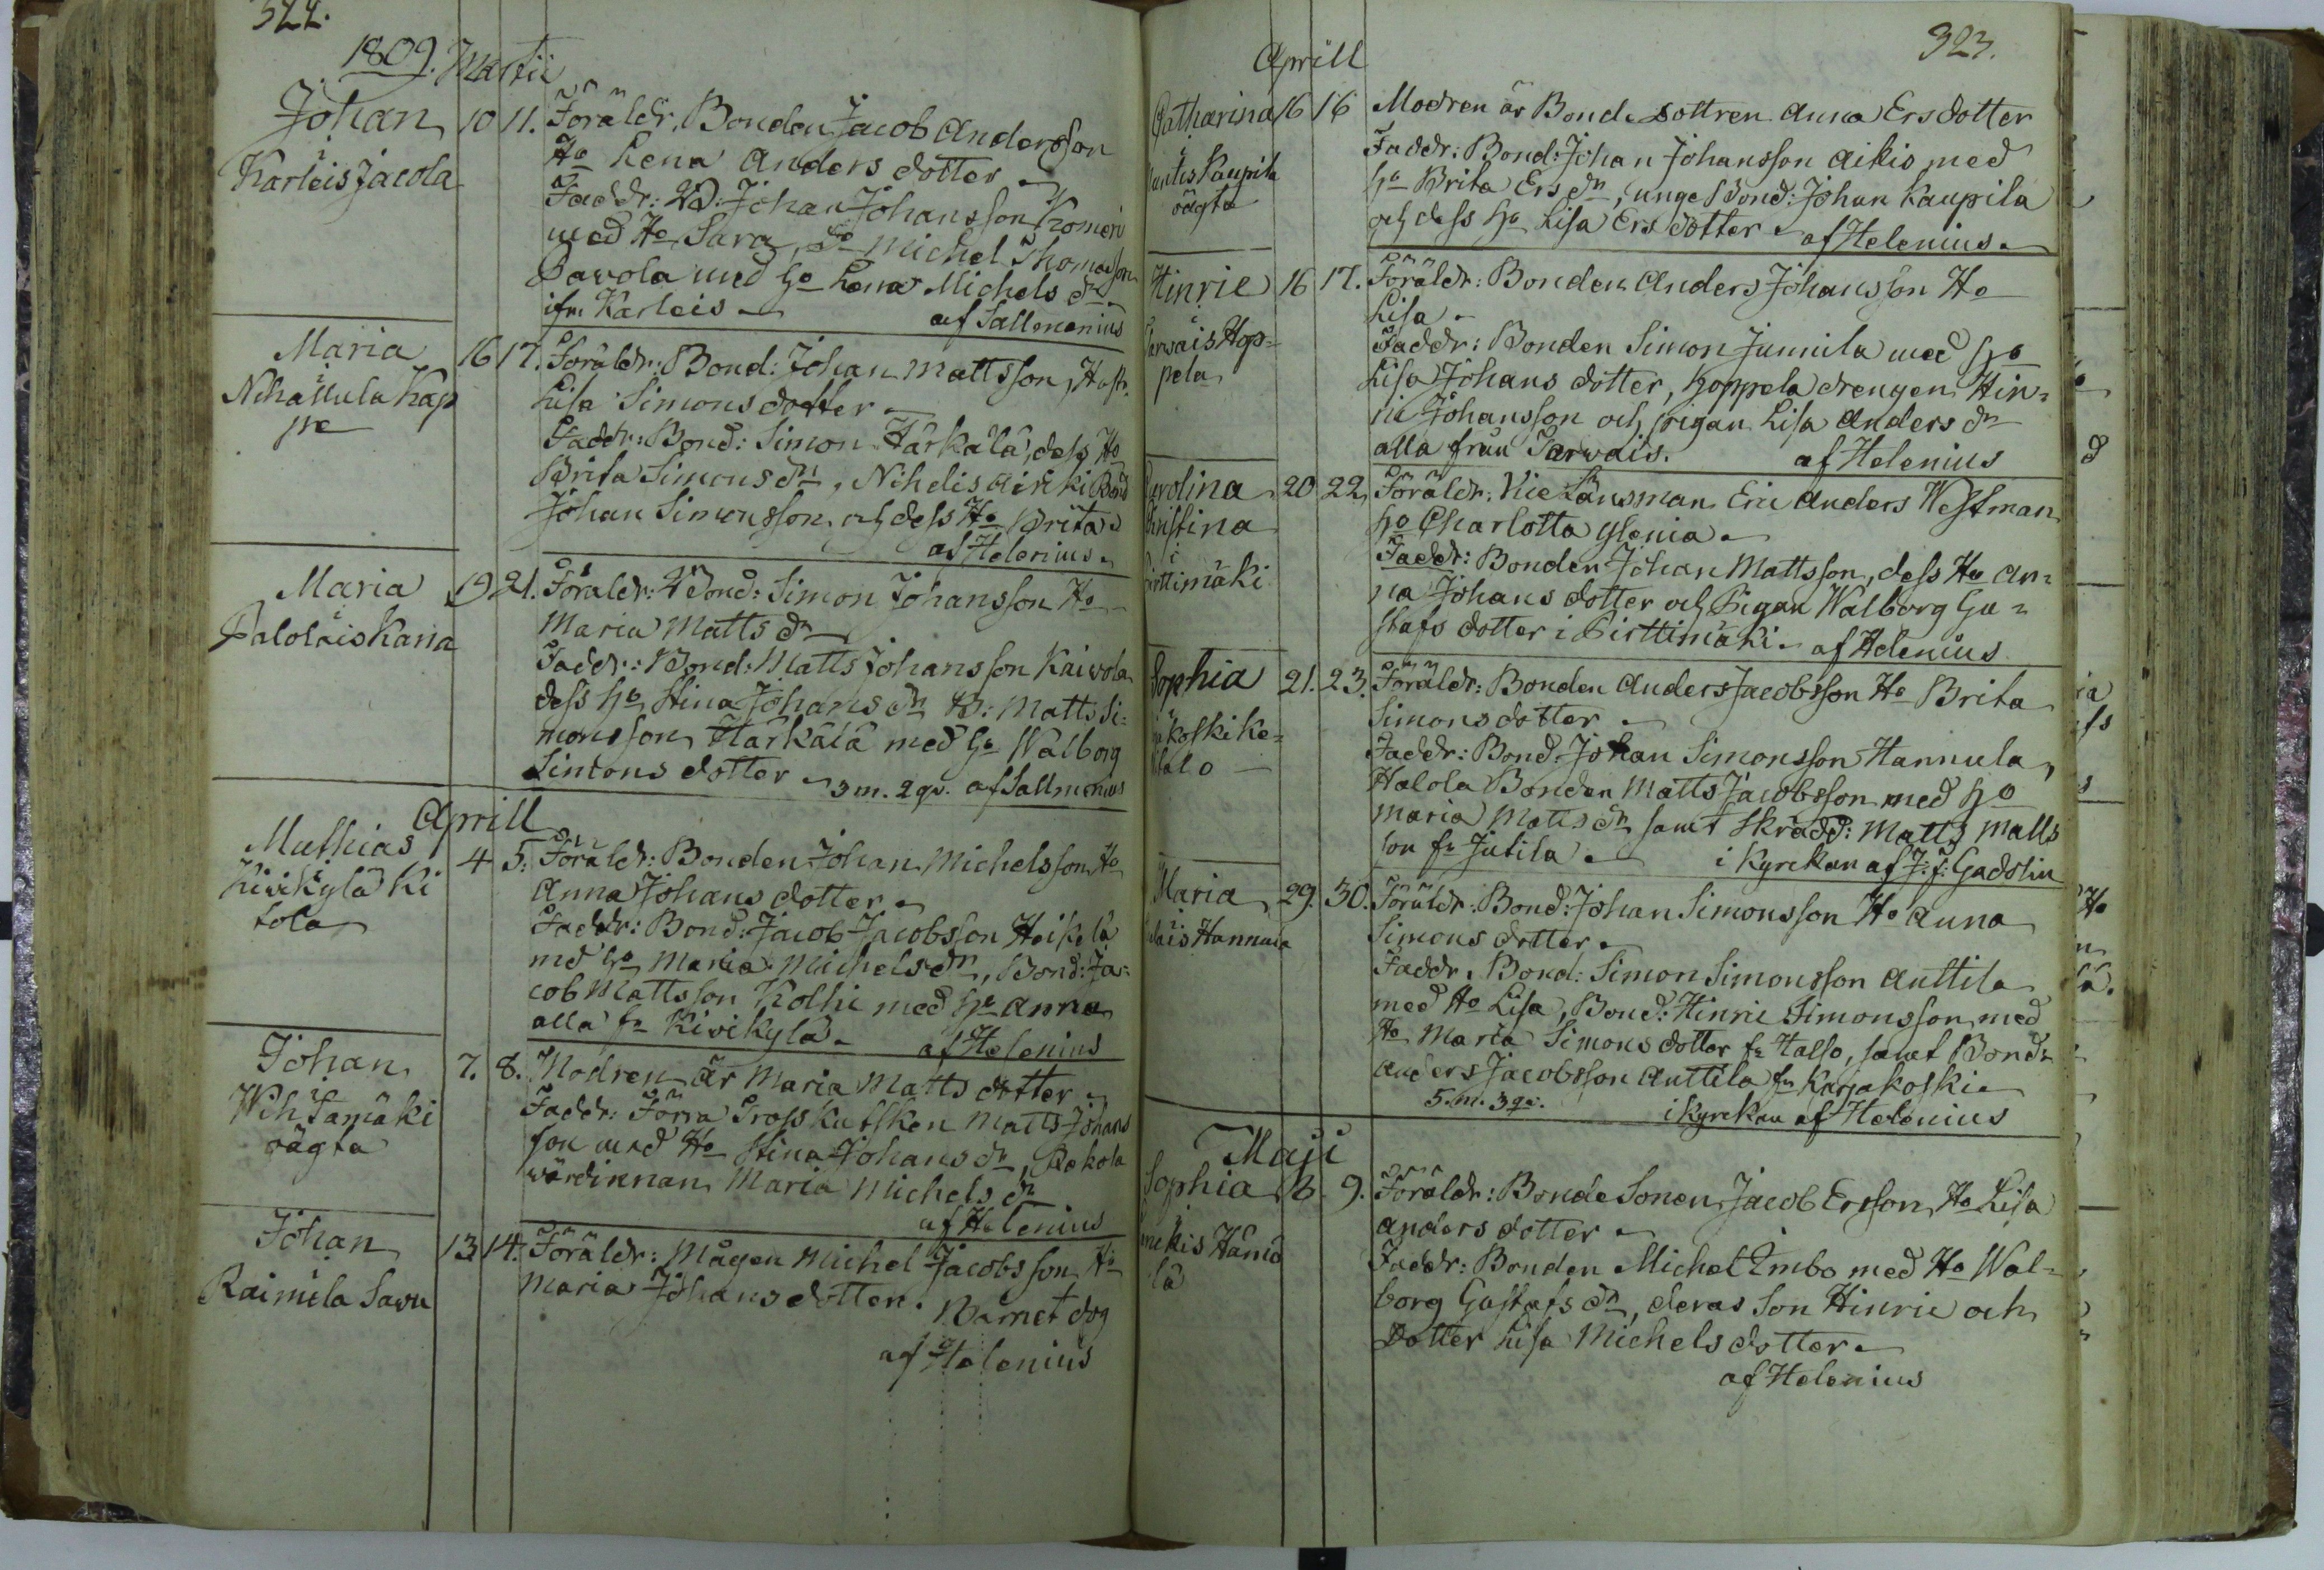 322.
1809. Martii
Johan 10 11. Föräldr. Bonden Jacob Andersson
i
Karleis Jacola
Ho Lena Anders dotter
Faddr: B: Johan Johansson Komeri
med Ho Sara, Michel Thomasson
Pavola med ho Lena Michels dr
ifr. Karleis af Sallmenius
Maria 16 17. Föräldr: Bond: Johan Mattsson, Hust.
i
Nihattula Kap
pe
Lisa Simonsdotter
Faddr: Bond: Simon Härkälä, dess Ho
Brita Simons dr, Nihelis Bond
Johan Simonsson och dess Ho Brita
af Helenius
Maria 19 21. Föräldr: Bond: Simon Johansson Ho
i
Palolais Karia
Maria Matts dr
Faddr: Bond: Matts Johansson Kaivola
dess ho Stina Johans dr B: Matts Si=
monsson Härkälä med ho Walborg
Simons dotter 3 m. 2 qv. af Sallmenius
Aprill
Mathias 4 5. Föräldr: Bonden Johan Michelsson Ho
i
Kivikylä Ki
tola
Anna Johans dotter
Faddr: Bond: Jacob Jacobsson Heikelä
med ho Maria Michels dr, Bond: Ja=
cob Mattsson Kolhi med ho Anna
alla fr Kivikylä. af Helenius
Johan 7. 8. Modren är Maria Matts dotter
i
Wihtamäki
oägta
Faddr: Förra Prosskutsken Matts Johans
son med Ho Stina Johans dr, Rekola
wärdinnan Maria Michels dr
af Helenius
Johan 13 14. Föräldr: Mågen Michel Jacobsson Ho
i
Raimela Savu
Maria Johans dotter. Barnet dog
af Helenius
323.
Aprill
Catharina 16 16 Modren är Bonde dottren Anna Ersdotter
i
Kaupila
oägta
Faddr: Bond: Johan Johansson Aikio med
ho Brita Ers dr, unge Bond: Johan Kaupila
och dess ho Lisa Ers dotter af Helenius
Hinric 16 17. Föräldr: Bonden Anders Johansson Ho
i
Sarwais Hop=
pela
Lisa
Faddr: Bonden Simon Junnila med ho
Lisa Johans dotter, Hoppela drengen Hin=
ric Johansson och pigan Lisa Anders dr
alla från Sarwais. af Helenius
Carolina 20 22 Föräldr. Vice Länsman Eric Anders Westman
Christina
i
Pirttimäki
ho Charlotta Ylenia
Faddr: Bonden Johan Mattsson, dess Ho An=
na Johans dotter och Pigan Walborg Gu=
stafs dotter i Pirttimäki af Helenius
Sophia 21. 23. Föräldr: Bonden Anders Jacobsson Ho Brita
koski Ke=
talo
Simons dotter
Faddr: Bond: Johan Simonsson Hannula,
Halola Bonden Matts Jacobsson med ho
Maria Matts dr samt Skrädd: Matts Matts
son fr Jutila i Kyrckan af J: f: Gadolin
Maria 29. 30. Föräldr: Bond: Johan Simonsson Ho Anna
i
Hannula
Simons dotter
Faddr. Bond: Simon Simonsson Anttila
med Ho Lisa, Bond: Hinric Simonsson med
Ho Maria Simons dotter fr Halso, samt Bond:
Anders Jacobsson Anttila fr Karjakoski
5. m. 3 qv. i Kyrckan af Helenius
Maji
Sophia 8 9. Föräldr: Bonde Sonen Jacob Ersson, Ho Lisa
i
Hämä
lä
Anders dotter
Faddr: Bonden Michel Imbo med Ho Wal=
borg Gustafs dr, deras Son Hinric och
Dotter Lisa Michels dotter
af Helenius